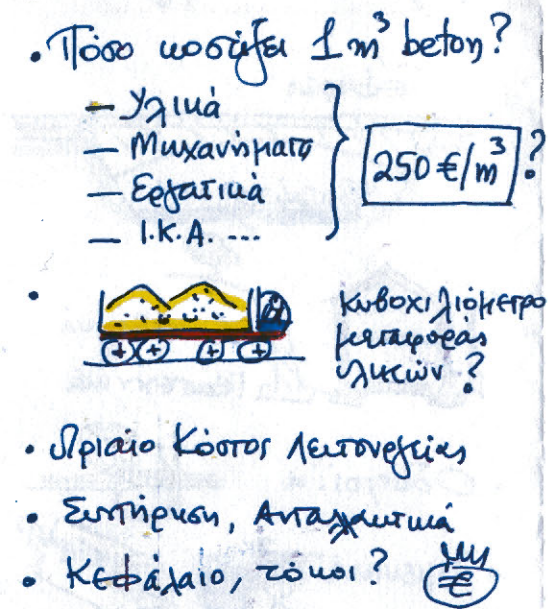 • Πόσο κοστίζει 1 m³ beton?
– Υλικά
– Μηχανήματα
– Εργατικά
– Ι.Κ.Α. ...
250 €/m³ ?
• κυβοχιλιόμετρο
μεταφοράς
υλικών ?
• Ωριαίο Κόστος Λειτουργείας
• Συντήρηση, Ανταλλακτικά
• Κεφάλαιο, τόκοι? €